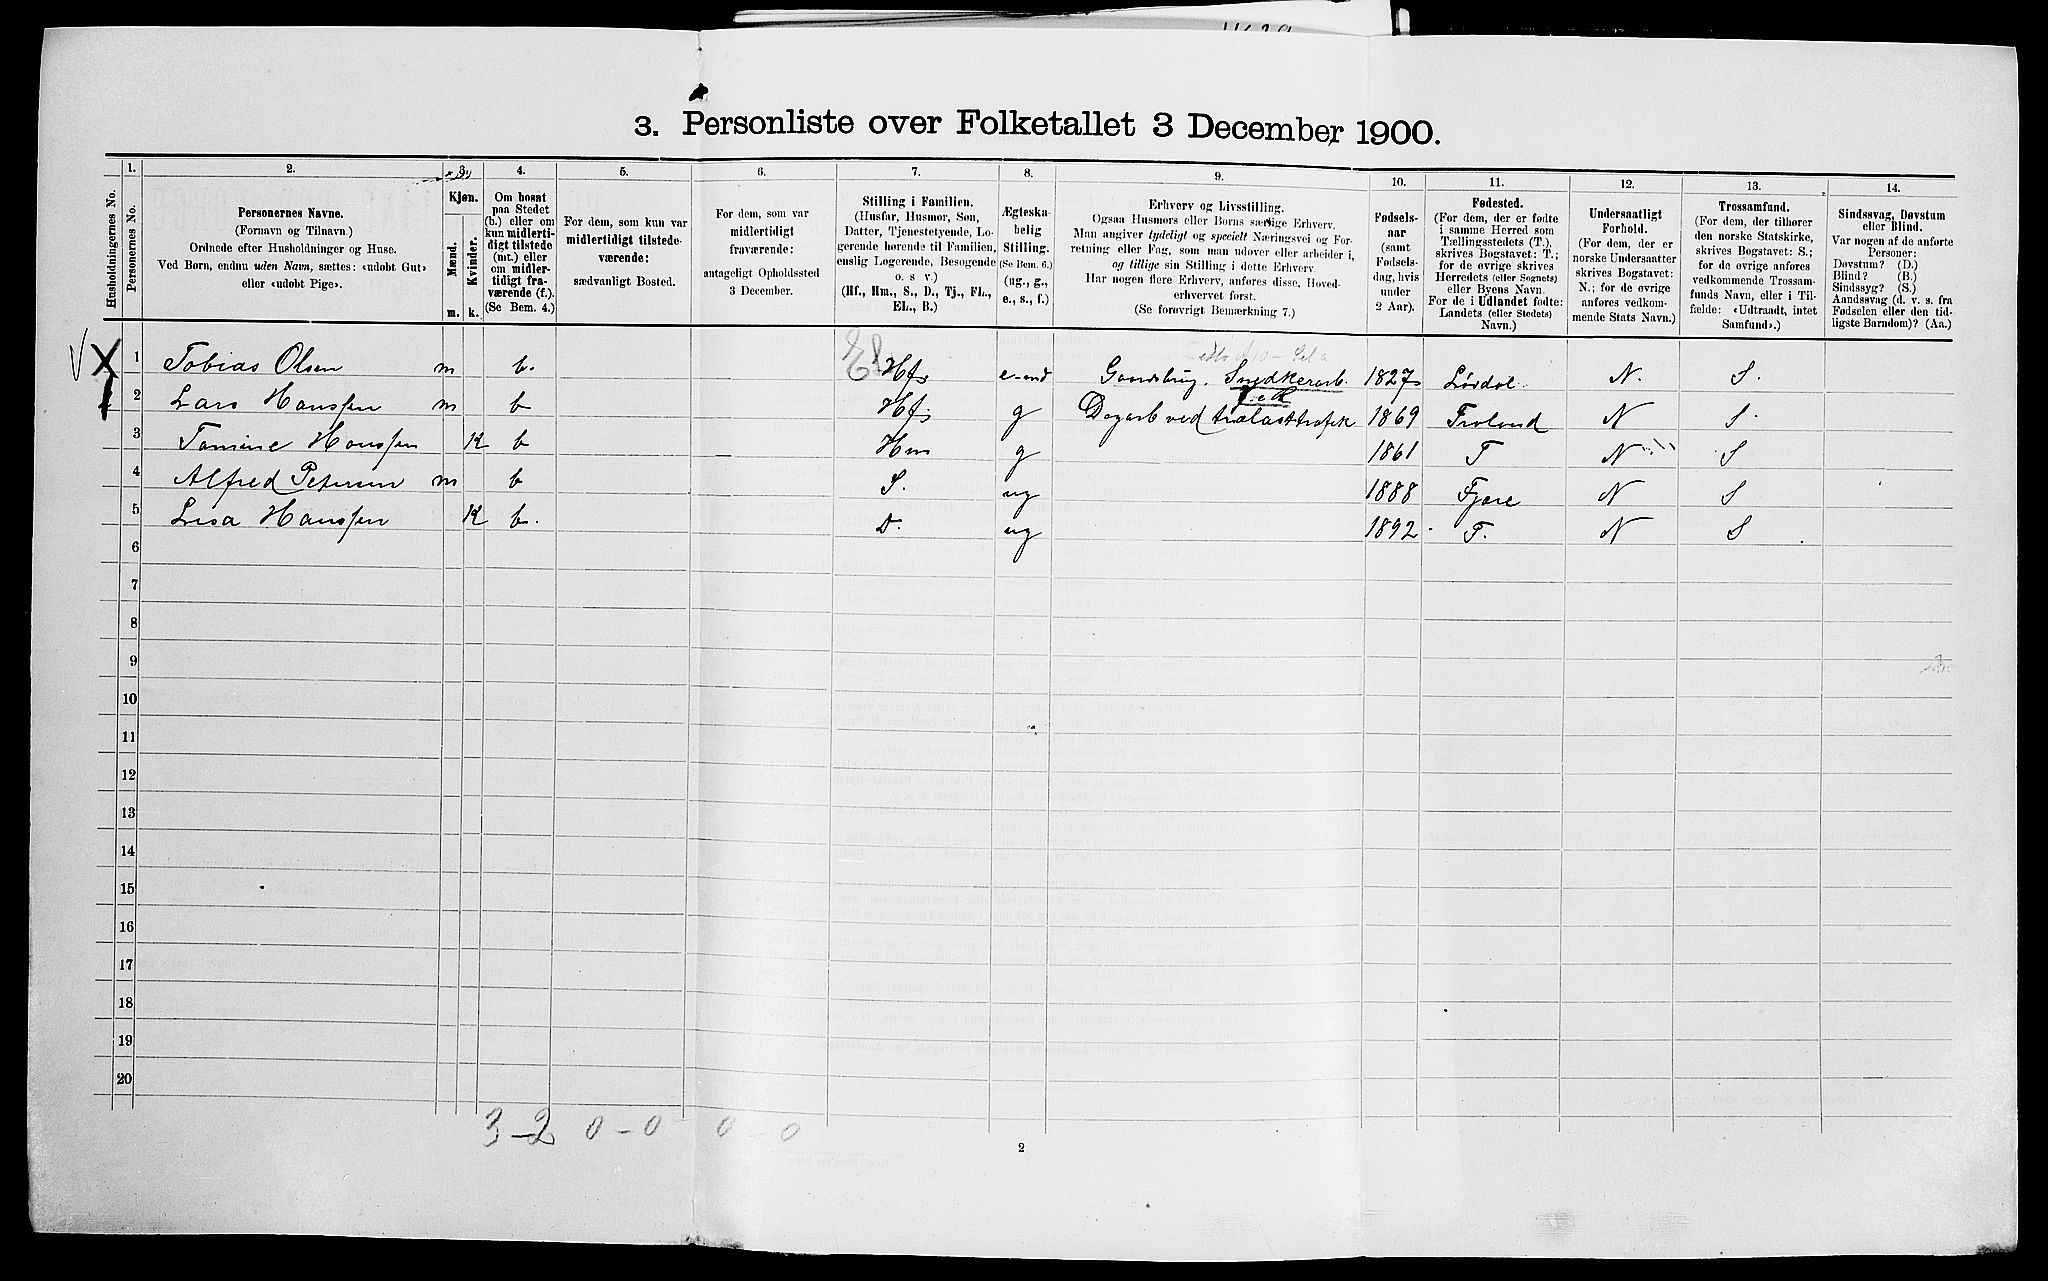 3. Personliste over Folketallet 3 December 1900.
Husholdningernes No.
1.
Personernes No.
2.
Personernes Navne.
(Fornavn og Tilnavn.)
Ordnede efter Husholdninger og Huse.
Ved Børn, endnu uden Navn, sættes: «udøbt Gut»
eller «udøbt Pige».
3.
Kjøn.
Mænd.
Kvinder.
m. k.
4.
Om bosat
paa Stedet
(b.) eller om
kun midlerti-
digt tilstede
(mt.) eller
om midler-
tidigt fra-
værende (f.).
(Se Bem. 4.)
5.
For dem, som kun var
midlertidigt tilstede-
værende:
sædvanligt Bosted.
6.
For dem, som var
midlertidigt
fraværende:
antageligt Opholdssted
3 December.
7.
Stilling i Familien.
(Husfar, Husmor, Søn,
Datter, Tjenestetyende, Lo-
gerende hørende til Familien,
enslig Logerende, Besøgende
o. s v.)
(Hf., Hm., S., D., Tj., FL.,
EL., B.)
8.
Ægteska-
belig
Stilling.
(Se Bem. 6.)
(ug., g.,
e., s., f.)
9.
Erhverv og Livsstilling.
Ogsaa Husmors eller Børns særlige Erhverv.
Man angiver tydeligt og specielt Næringsvei og For-
retning eller Fag, som man udøver eller arbeider i,
og tillige sin Stilling i dette Erhverv.
Har nogen flere Erhverv, anføres disse, Hoved-
erhvervet først.
(Se forøvrigt Bemærkning 7.)
10.
Fødsels-
aar
(samt
Fødsels-
dag, hvis
under
2 Aar).
11.
Fødested.
(For dem, der er fødte
i samme Herred som
Tællingsstedets (T.),
skrives Bogstavet: T.;
for de øvrige skrives
Herredets (eller Sognets)
eller Byens Navn.
For de i Udlandet fødte:
Landets (eller Stedets)
Navn.)
12.
Undersaatligt
Forhold.
(For dem, der er
norske Undersaatter
skrives Bogstavet:
N.; for de øvrige
anføres vedkom-
mende Stats Navn.)
13.
Trossamfund.
(For dem, der tilhører
den norske Statskirke,
skrives Bogstavet: S.;
for de øvrige anføres
vedkommende Trossam-
funds Navn, eller i Til-
fælde: «Udtraadt, intet
Samfund».)
14.
Sindssvag, Døvstum
eller Blind.
Var nogen af de anførte
Personer:
Døvstum? (D.)
Blind? (B.)
Sindssyg? (S.)
Aandssvag (d. v. s. fra
Fødselen eller den tid-
ligste Barndom)? (Aa.)
1 Tobias Olsen m b. El Hf. e-md Gaardsbrug. Snedkerarb. 1827 N. S.
2 Lars Hanssen m b Hf. g Dagarb ved trælasttrafik 1869 Froland N S
3 Tomine Hanssen K b Hm g 1861 T N S
4 Alfred Petersen m b S. ug 1888 Fjære N S
5 Lisa Hanssen K b. D. ug 1892 T. N S
6
7
8
9
10
11
12
13
14
15
16
17
18
19
20
3-2 0-0 0-0
2